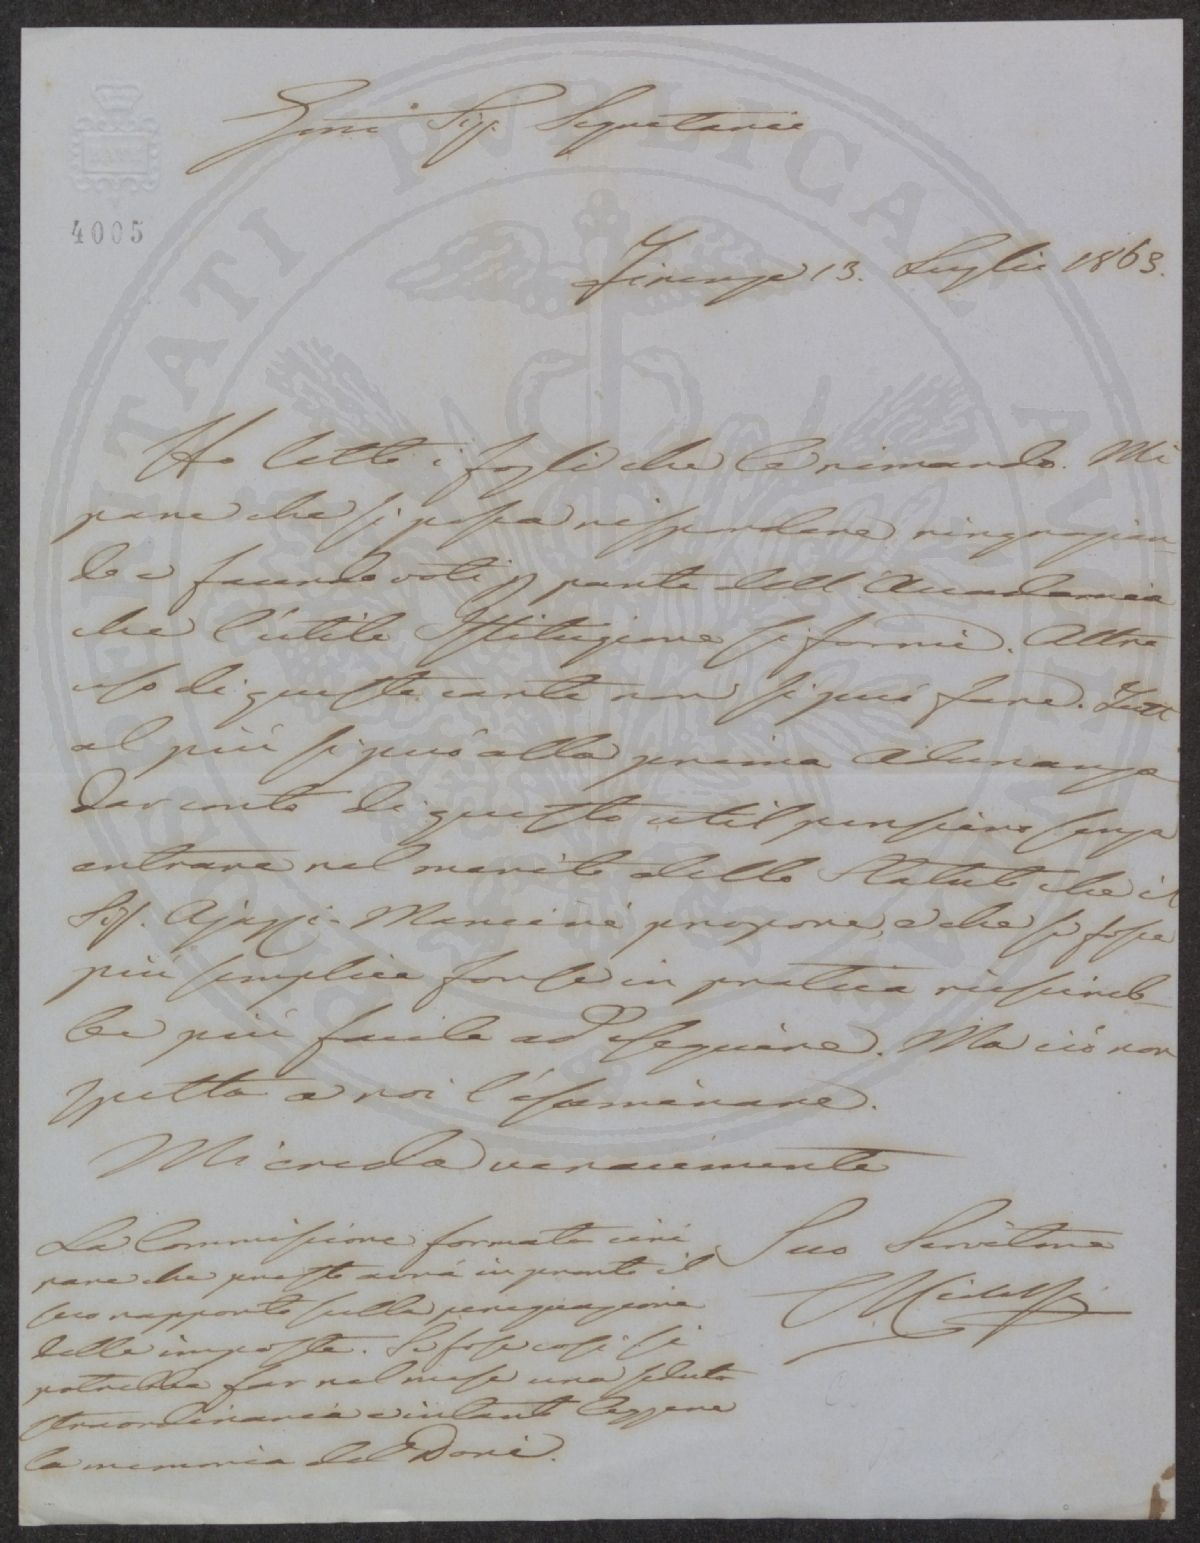 BATH
4005
PROSPERITATI PVBLICAE AVGENDAE
Gmo Sig. Segretario
Firenze 13. Luglio 1863.
Ho letto i fogli che le rimando. Mi
pare che si possa rispondere ringrazian-
do e facendo voti p parte dell'Accademia
che l'utile Istituzione si formi. Altro
uso di queste carte non si può fare. Tutt
al più si può alla prima Adunanza
dar conto di questo util pensiero senza
entrare nel merito dello Statuto che il
Sig. Ajazzi-Mancini propone, e che se fosse
più semplice forse in pratica riuscireb-
be più facile ad eseguire. Ma ciò non
spetta a noi l'esaminare.
Mi creda veracemente
Suo Servitore
Ridolfi
La Commissione formata ieri
pare che presto avrà in pronto il
suo rapporto sulla perequazione
delle imposte. Se fosse così si
potrebbe far nel mese una seduta
straordinaria e intanto leggere
la memoria del Doni.